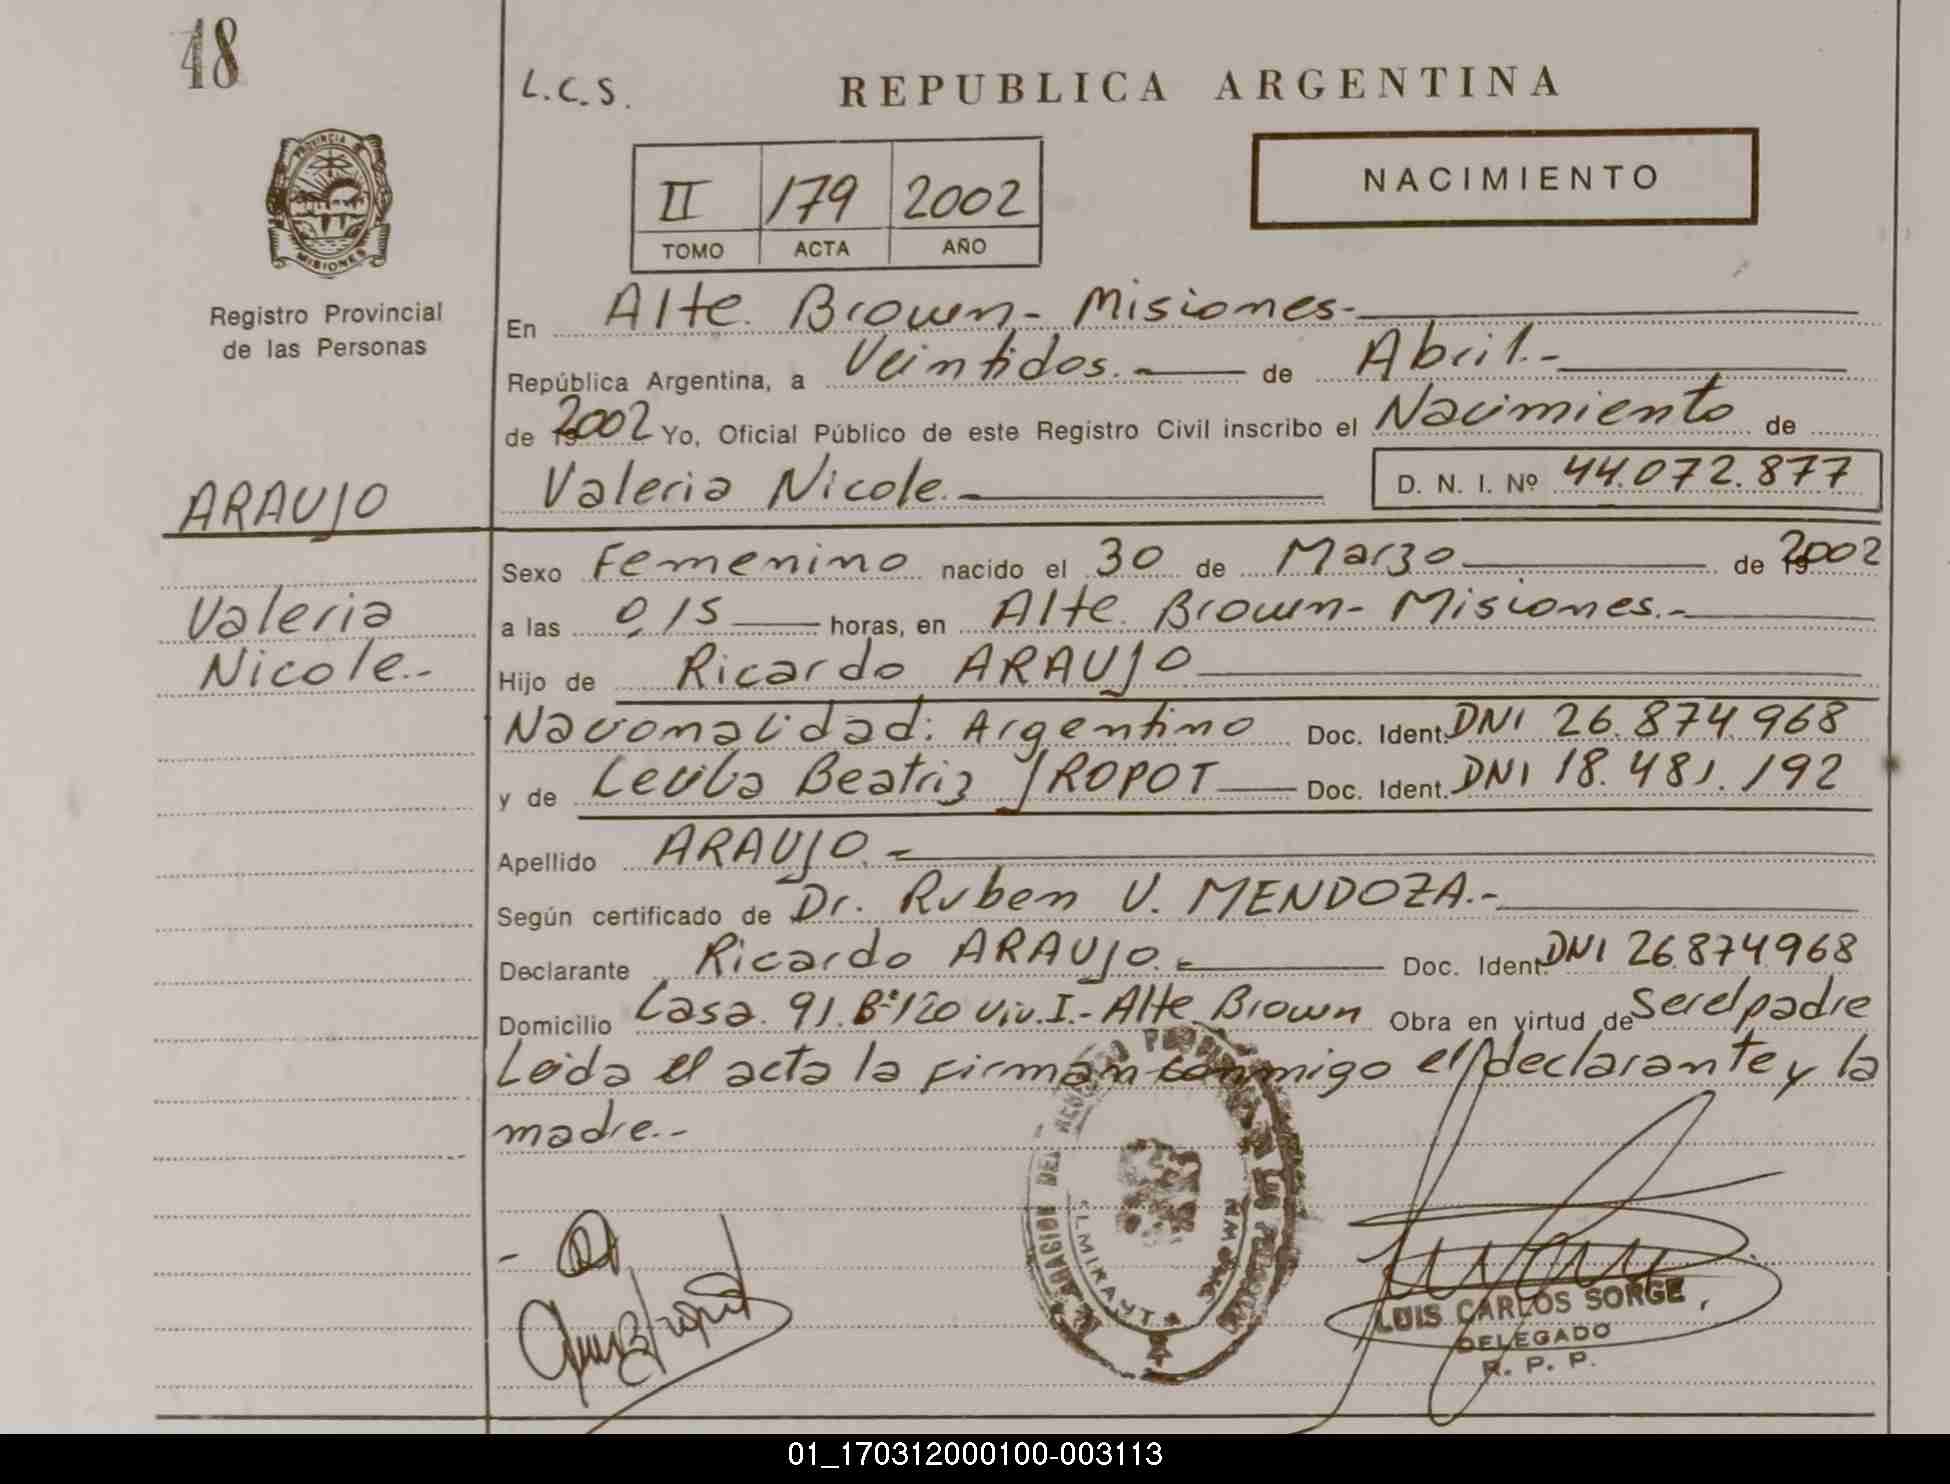 48
L.C.S.
REPUBLICA ARGENTINA
PROVINCIA DE
MISIONES
II 179 2002
TOMO ACTA AÑO
NACIMIENTO
Registro Provincial
de las Personas
En Alte. Brown - Misiones.-
República Argentina, a Veintidos.- de Abril.-
de 2002 Yo, Oficial Público de este Registro Civil inscribo el Nacimiento de
Valeria Nicole.- D. N. I. Nº 44.072.877
ARAUJO
Valeria
Nicole.-
Sexo Femenino nacido el 30 de Marzo de 2002
a las 0,15 horas, en Alte. Brown - Misiones.-
Hijo de Ricardo ARAUJO
Nacionalidad: Argentino Doc. Ident. DNI 26.874.968
y de Beatriz Doc. Ident. DNI 18.481.192
Apellido ARAUJO.-
Según certificado de Dr. Ruben V. MENDOZA.-
Declarante Ricardo ARAUJO.- Doc. Ident. DNI 26.874.968
Domicilio Casa 91. Bº 120 Viv. I.- Alte. Brown Obra en virtud de ser el padre
Leida el acta la firman conmigo el declarante y la
madre.-
LUIS CARLOS SORGE
DELEGADO
R. P. P.
01_170312000100-003113